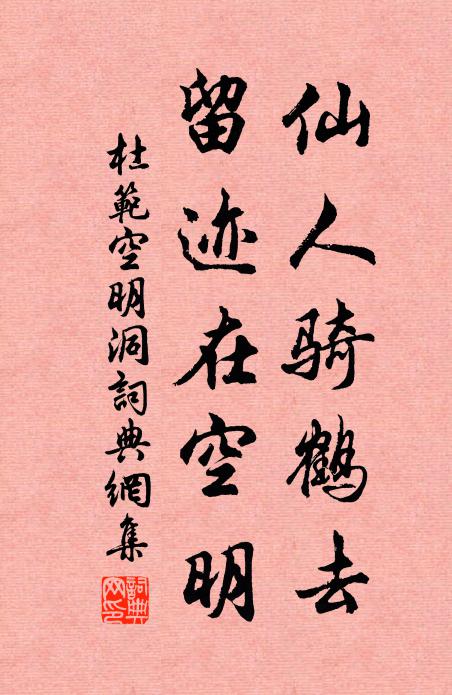 仙人骑鹤去
留迹在空明
杜範空明洞詞典網集
詞典网印